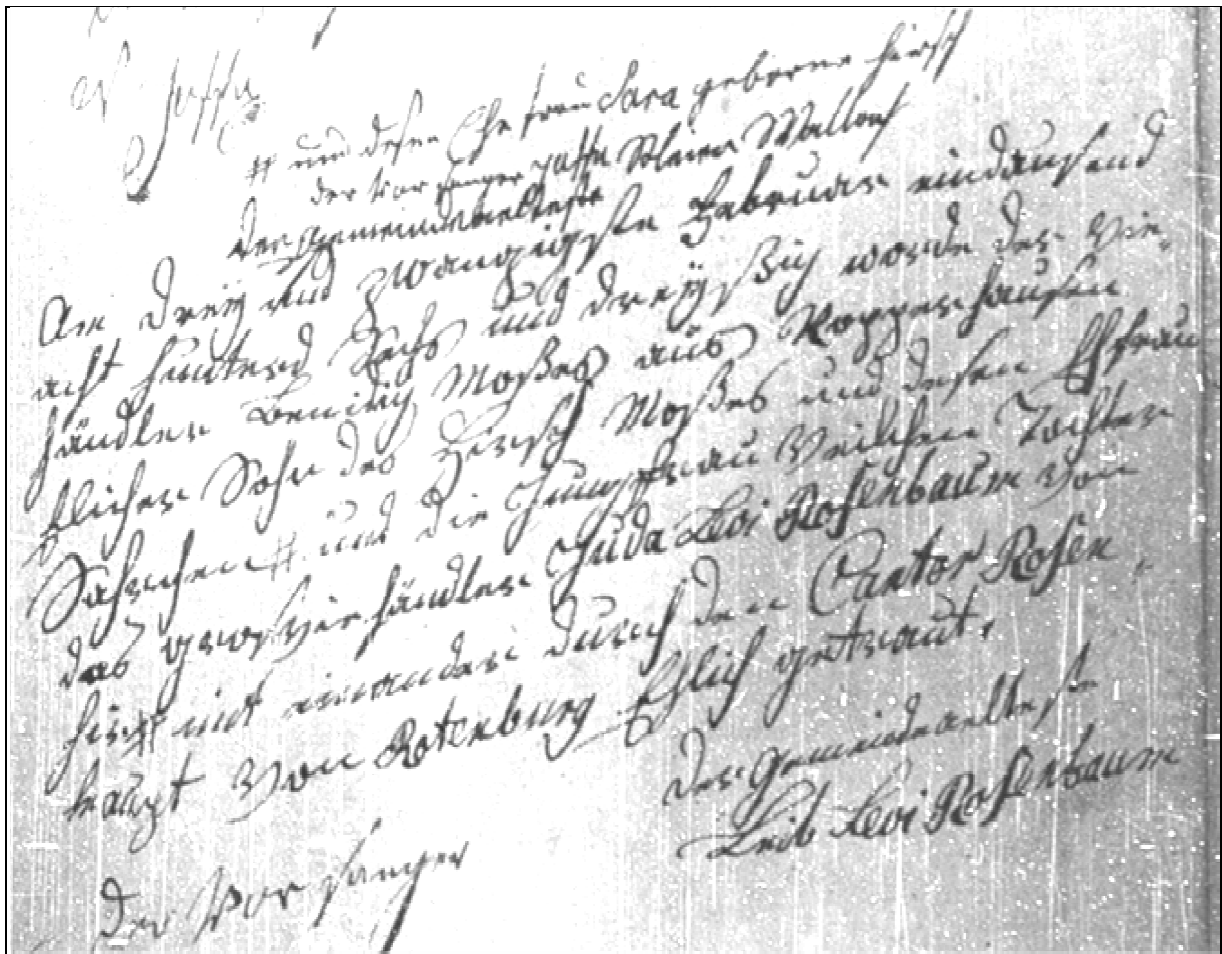 Joffa
# und desen Ehe frau Sara geborne Hirsch
der Vor senger Joffa Salmon Wallach
der gemeindeaelteste
Am drey und zwanzigste Februar eindausend
acht hundterd Sechs und dreyßig worde der Vie,
händler Bendix Moßes aus Roppershausen
Ehlicher Sohn des Hirsch Moßes und desen Ehfrau
Sahrchen # und die Jungfrau Veilchen Tochter
das grosviehändler Juda Levi Rosenbaum von
hir # mit einander durch den Cantor Rosen,
haupt von Rotenburg Ehlich getraut.
der gemeindeaelteste
Leib Levi Rosenbaum
Der Vor sanger